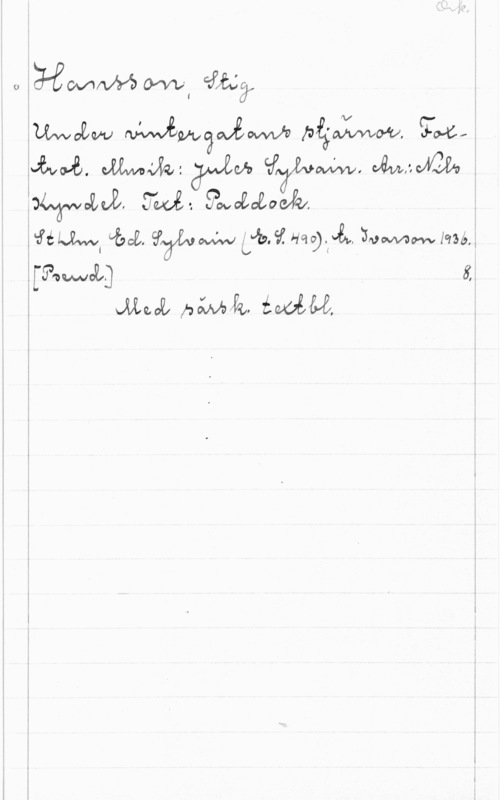 Ork.
Hansson, Stig
Under vintergatans stjärnor. Fox-
trot. Musik: Jules Sylvain. Arr.: Nils
Kyndel. Text: Paddock.
Sthlm, Ed. Sylvain (E.S. 490), tr. Ivarson 1936.
[Pseud.] 8,
Med särsk. textbl.